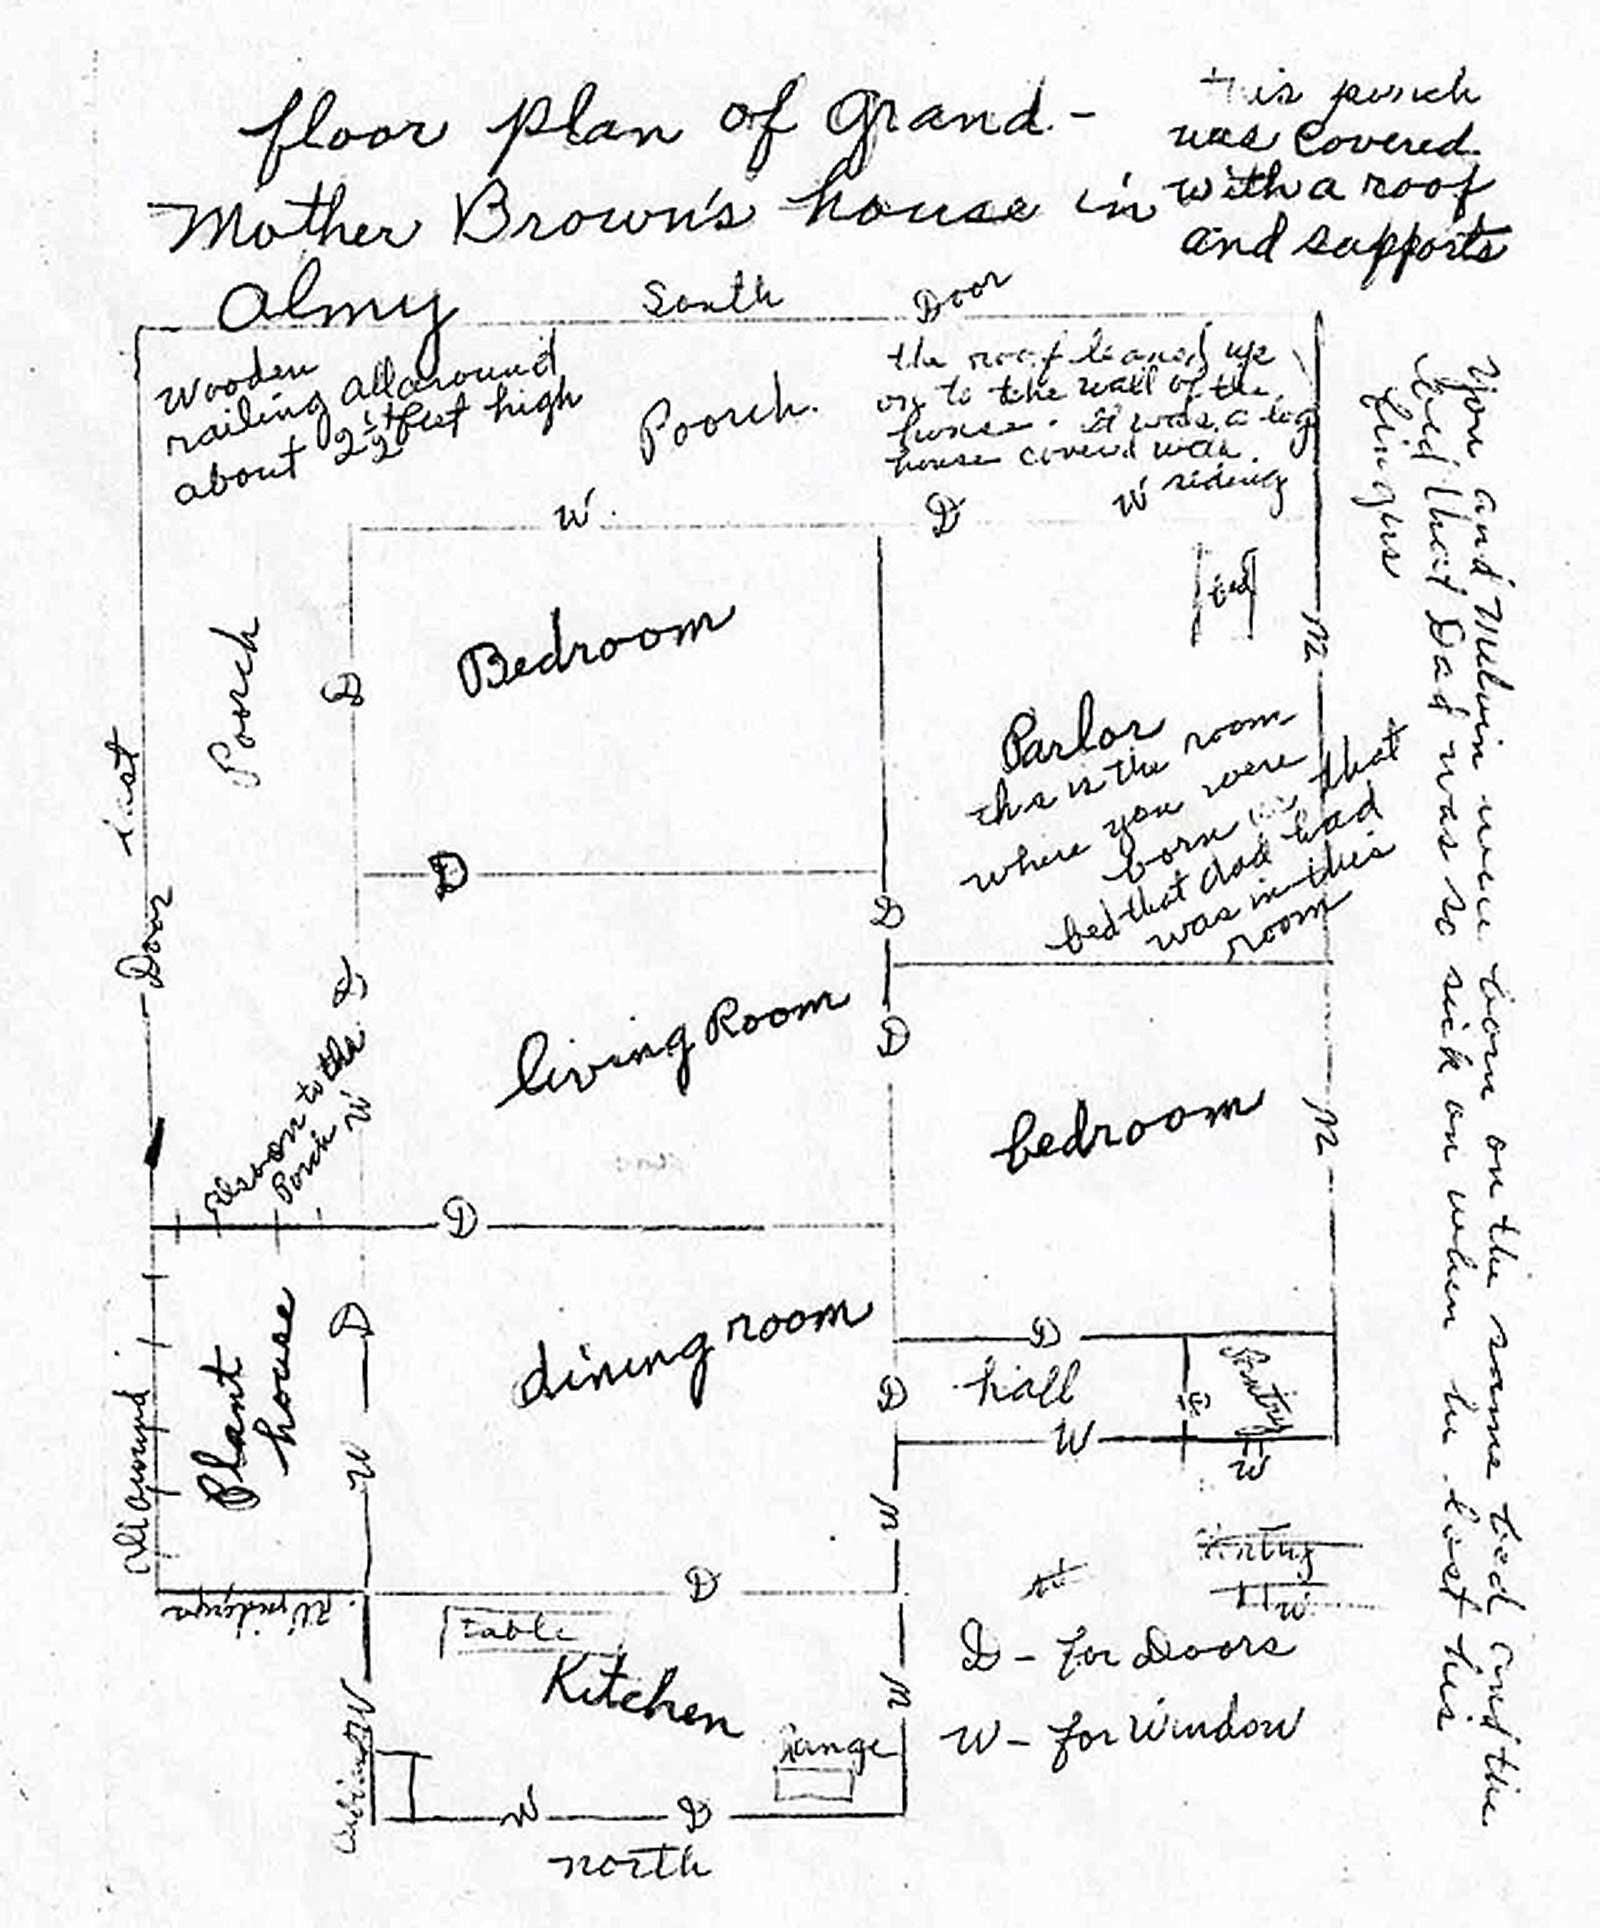 floor plan of Grand-
Mother Brown's house in
Almy
this porch
was covered
with a roof
and supports
South
Door
Wooden
railing all around
about 2 1/2 feet high
Poorch.
the roof leaned up
on to the wall of the
house. It was a log
house coverd with
siding
W
D
W
bed
Bedroom
Poorch
D
W
east
Door
Parlor
this is the room
where you were
born that
bed that dad had
was in this
room
D
D
D
D
living Room
Also on to the
Porch
W
bedroom
W
D
D
hall
D
Pantry
D
W
W
Plant
house
D
W
dining room
W
all around
Windows
D
table
Kitchen
Range
W
W
W
D
north
D - for Doors
W - for Window
You and Melvin were born on the same bed and the
bed that Dad was so sick on when he lost his
fingers